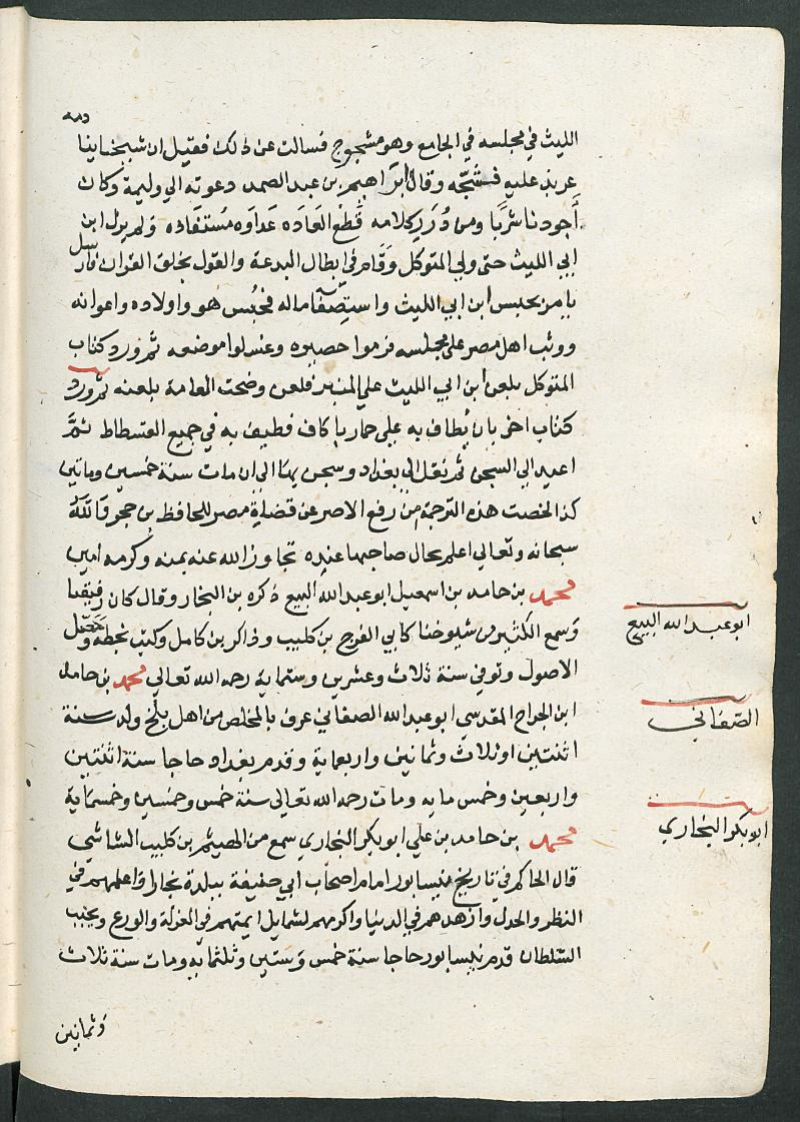 الليث في مجلسه في الجامع وهو مشجوج فسالت عن ذلك فقيل ان شيخاينا
عربد عليه فشجّه وقال ابراهيم بن عبد الصمد دعوته الي وليمة وكان
أجودنا شربًا ومن دُرَرِ كلامه قَطْع العَادَه عَداوَه مُستَفادَه ولم يزل ابن
ابي الليث حتى ولي المتوكل وقام في ابطال البدعة والقول بخلق القران وارسل
يامر بحبس ابن ابي الليث واستصفا ماله فحُبس هو واولاده واعوانه
ووثب اهل مصر على مجلسه فرموا حصيره وغسلوا موضعه ثم ورد كتاب
المتوكل بلعن ابن ابي الليث علي المنبر فلعن وضجت العامة بلعنه ثم ورد
كتاب اخر بان يُطاف به علي حمار باكاف فطيف به في جميع الفسطاط ثمَّ
اعيد الي السجن ثم نقل الي بغداد وسجن بها الى ان مات سنة خمسين وماتين
كذا لخصت هذه الترجمة من رفع الاصر عن قضاة مصر للحافظ بن حجر فالله
سبحانه وتعالي اعلم بحال صاحبها عنده تجاوز الله عنه بمنه وكرمه امين
محمد بن حامد بن اسمعيل ابو عبد الله البيع ذكره بن النجار وقال كان رفيقنا
وسمع الكثير من شيوخنا كابي الفرج بن كليب وذاكر بن كامل وكتب بخطه وحصّل
الاصول وتوفي سنة ثلاث وعشرين وستماية رحه الله تعالي محمد بن حامد
ابن الجراح المقدسي ابو عبد الله الصغاني عرف بالمخلص من اهل بلخ ولد سنة
اثنتين او ثلاث وثمانين واربعماية وقدم بغداد حاجا سنة اثنتين
واربعين وخمس مايه ومات رحه الله تعالى سنة خمس وخمسين وخمسماية
محمد بن حامد بن علي ابو بكر البخاري سمع من الهيثم بن كليب الشاشي
قال الحاكم في تاريخ نيسابور امام اصحاب ابي حنيفة ببلدة بخارا واعلمهم في
النظر والجدل وازهدهم في الدنيا واكرمهم لشمايل ايمتهم في العزلة والورع وتجنب
السّلطان قدم نيسابور حاجا سنة خمس وستين وثلثمايه ومات سنة ثلاث
وثمانين
ابو عبد الله البيع
الصّغاني
ابو بكر البخاري